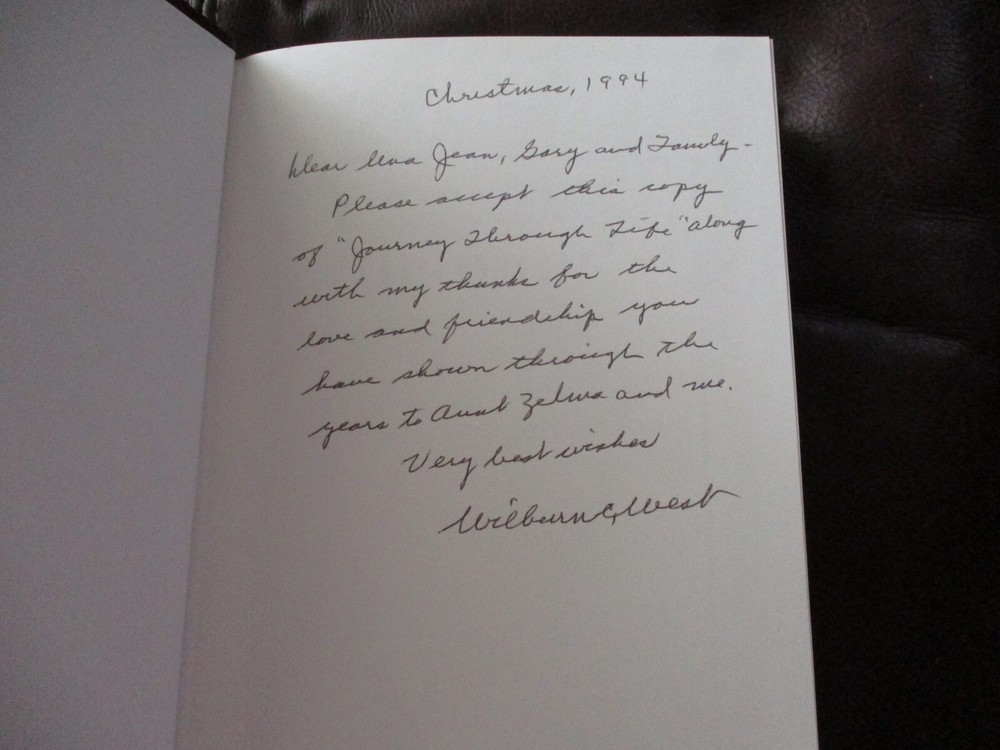 Christmas, 1994
Dear Una Jean, Gary and Family -
Please accept this copy
of "Journey Through Life" along
with my thanks for the
love and friendship you
have shown through the
years to Aunt Zelma and me.
Very best wishes
Wilburn C. West